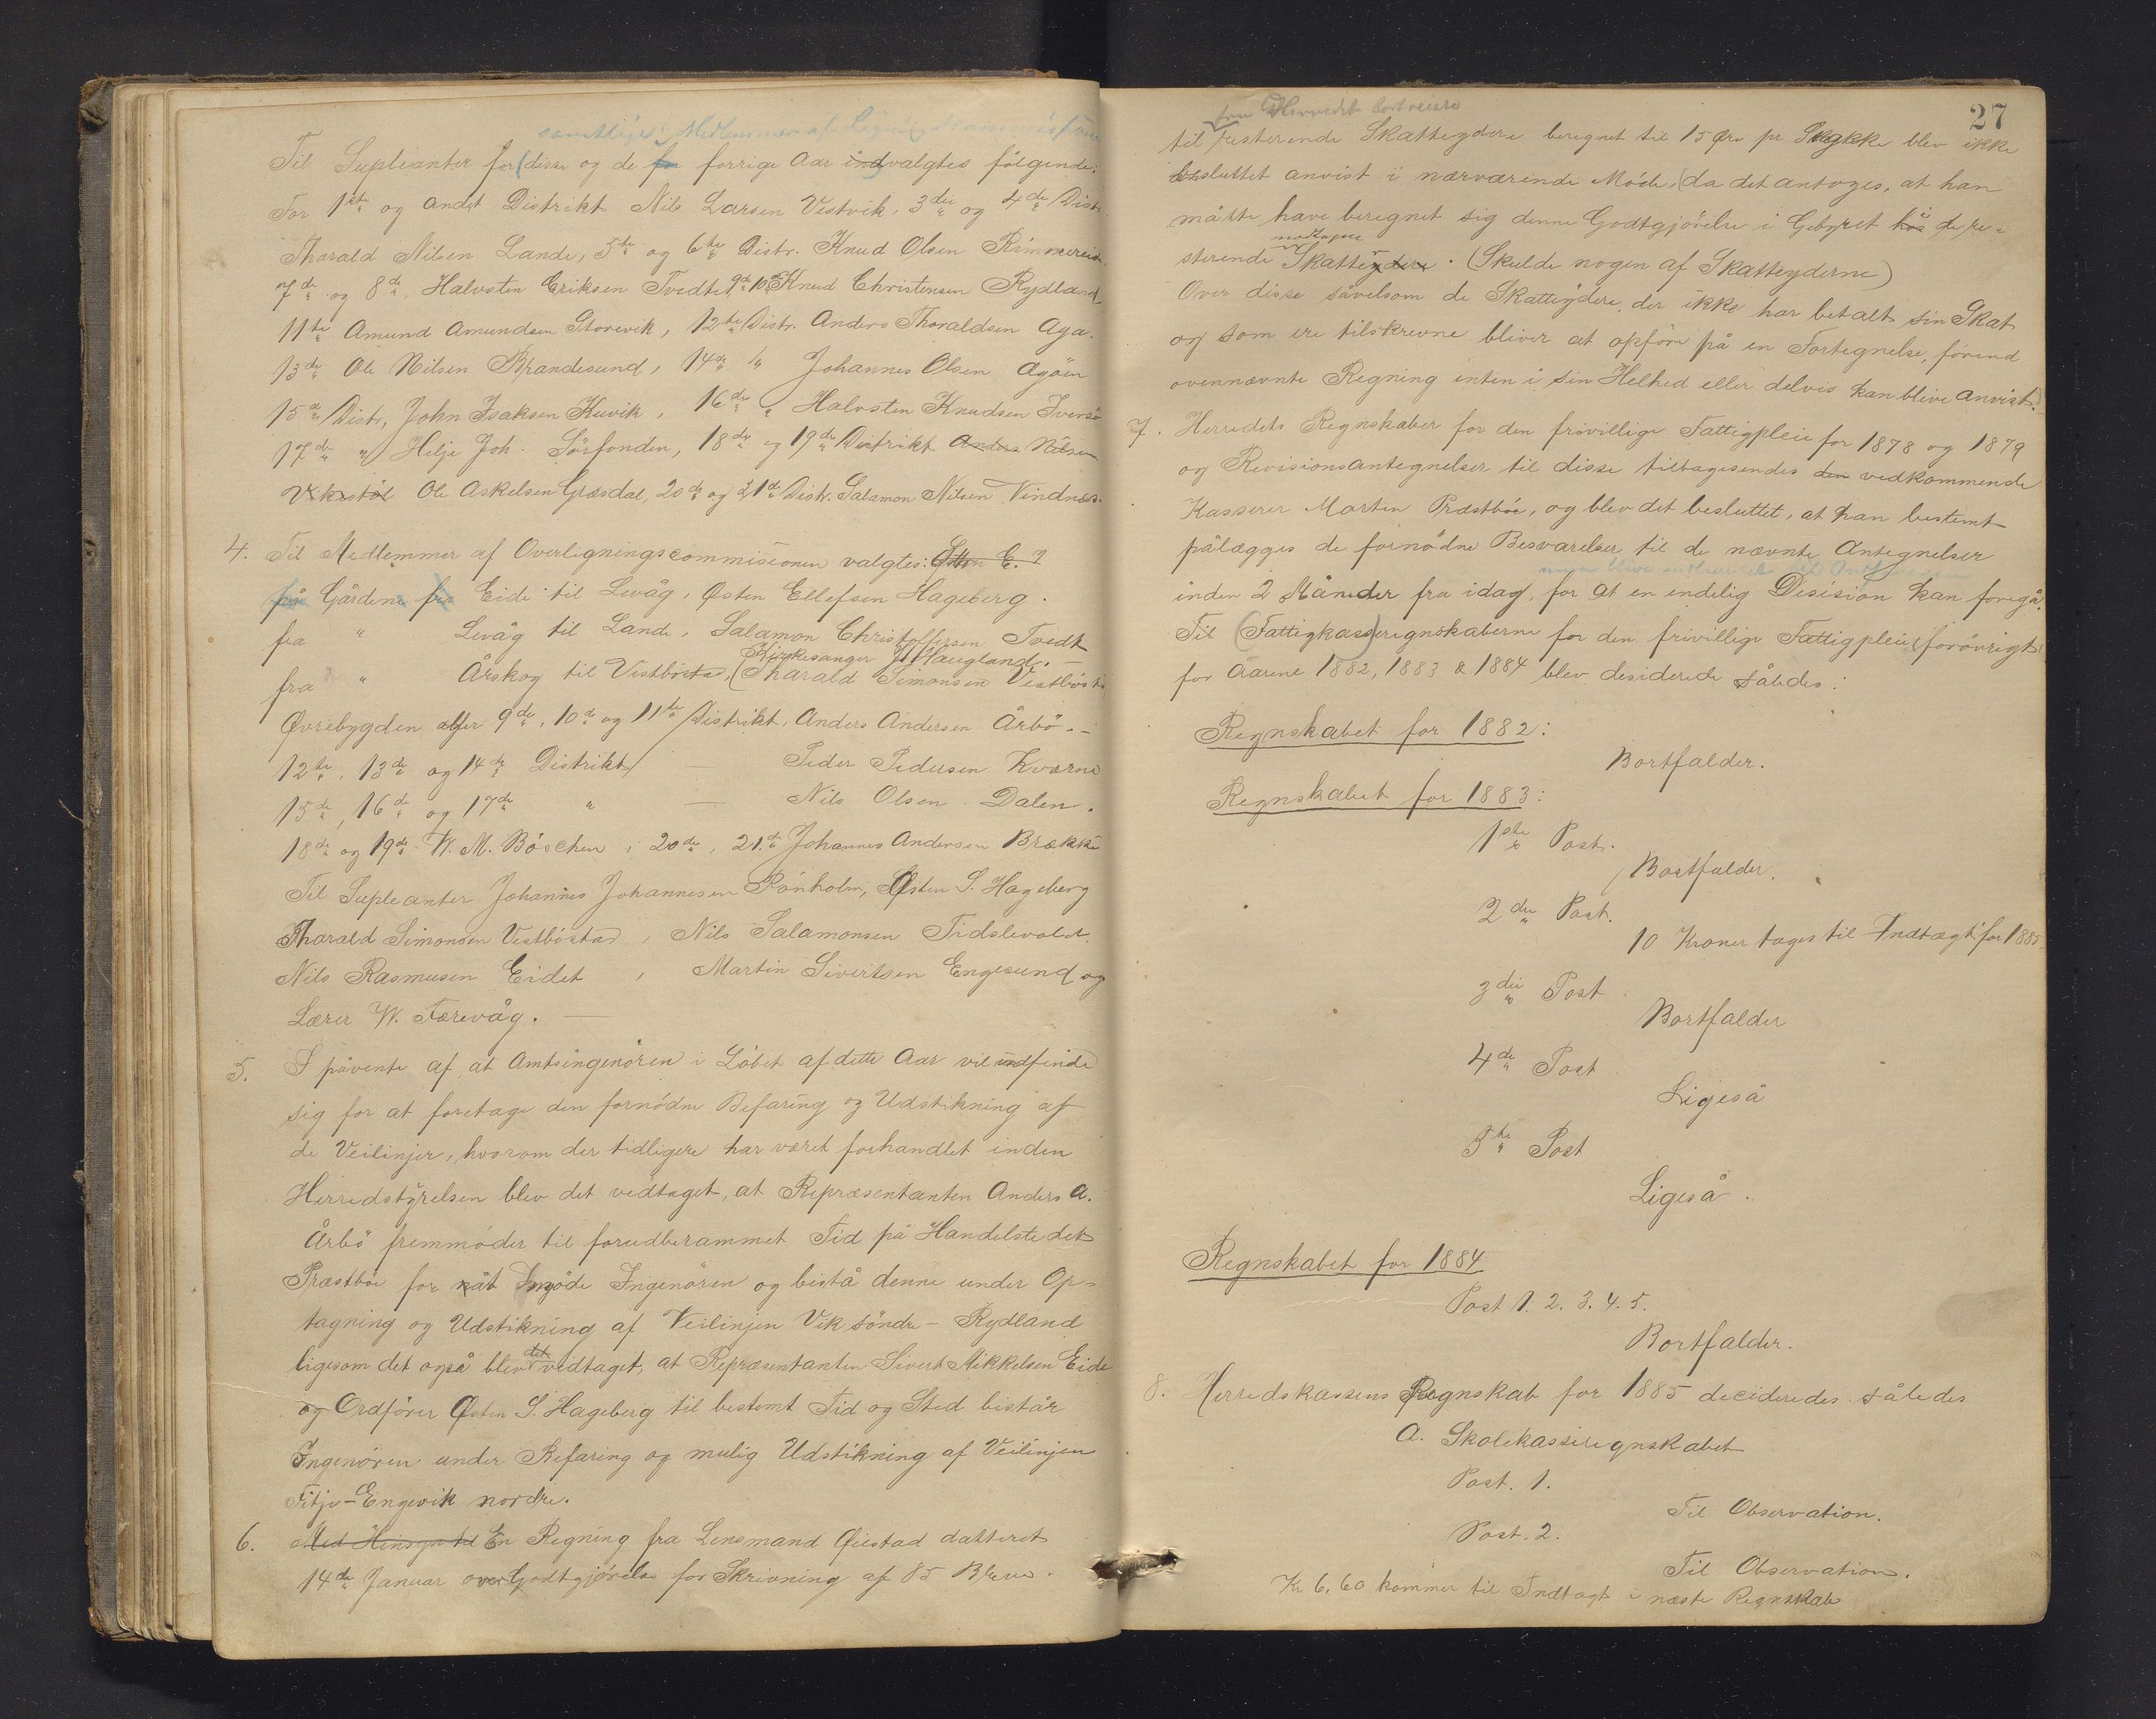 samtlige Medlemmer af
Til Suplianter for (disse og de fo forrige Aar indvalgtes følgende:
For 1ste og andet Distrikt Nils Larsen Vestvik, 3die og 4de Distr.
Tharald Nilsen Lande, 5te og 6te Distr. Knud Olsen Rimmereid
7de og 8de, Halvsten Eriksen Tvedte, 9de 10de Knud Christensen Rydland
11te Amund Amundsen Storevik, 12te Distr. Anders Tharaldsen Aga.
13de Ole Nilsen Brandesund, 14de " Johannes Olsen Agöen
15de Distr, John Isaksen Kuvik, 16de " Halvsten Knudsen Iversö
17de " Helje Joh. Sörfonden, 18de og 19de Distrikt Anders Nilsen
Vikastöl Ole Askelsen Græsdal, 20de og 21de Distr. Salamon Nilsen Vindnæs.
4. Til Medlemmer af Overligningscommisionen valgtes: Østen E.
på Gårdene fra Eide til Levåg, Østen Ellefsen Hageberg.
fra " Levåg til Lande, Salamon Christoffersen Tvedt
Kirkesanger J. Haugland.
fra " Årskog til Vestbøstad, (Tharald Simonsen Vestbøst
Øvrebygden eller 9de, 10de og 11te Distrikt, Anders Andersen Årbö. -
12te, 13de og 14de Distrikt - Peder Pedersen Kværne
15de, 16de og 17de " - Nils Olsen Dalen.
18de og 19de W. M. Böschen, 20de, 21de Johannes Andersen Brække
Til Supleanter Johannes Johannesen Rönholm, Østen S. Hageberg
Tharald Simonsen Vestbøstad, Nils Salamonsen Tidslevold,
Nils Rasmusen Eidet, Martin Sivertsen Engesund og
Lærer W. Færevåg. -
5. I påvente af at Amtsingenören i Löbet af dette Aar vil indfinde
sig for at foretage den fornödne Befaring og Udstikning af
de Veilinjer, hvorom der tidligere har været forhandlet inden
Herredstyrelsen blev det vedtaget, at Repræsentanten Anders A.
Årbö fremmöder til forudberammet Tid på Handelstedet
Præstbøe for at möde Ingenören og bistå denne under Op-
tagning og Udstikning af Veilinjen Vik söndre - Rydland
ligesom det også blev det vedtaget, at Repræsentanten Sivert Mikkelsen Eide
og Ordförer Østen S. Hageberg til bestemt Tid og Sted bistår
Ingenören under Befaring og mulig Udstikning af Veilinjen
Fitje-Engevik nordre.
6. Med Hensyn til En Regning fra Lensmand Øiestad datteret
14de Januar over Godtgjörelse for Skrivning af 85 Breve.
27
fra Herredet bortreiste
til resterende Skatteydere beregnet til 15 Øre pr Stykke blev ikke
besluttet anvist i nærværende Möde, (da det antoges, at han
måtte have beregnet sig denne Godtgjörelse i Gebyret hos de re-
sterende Skatteydere. (Skulde nogen af Skatteyderne)
Over disse såvelsom de Skatteydere, der ikke har betalt sin Skat
og som ere tilskrevne bliver at opföre på en Fortegnelse, förend
ovennævnte Regning enten i sin Helhed eller delvis kan blive anvist.
7. Herredets Regnskaber for den frivillige Fattigpleie for 1878 og 1879
og Revisionsantegnelser til disse tilbagesendes den vedkommende
Kasserer Morten Præstböe, og blev det besluttet, at han bestemt
pålægges de fornödne Besvarelser til de nævnte Antegnelser
inden 2 Måneder fra idag, for at en endelig Desision kan foregå.
Til (Fattigkasseregnskaberne for den frivillige Fattigpleie (forövrigt)
for Aarene 1882, 1883 & 1884 blev desiderede således:
Regnskabet for 1882:
Bortfalder.
Regnskabet for 1883:
1ste Post.
Bortfalder.
2den Post.
10 Kroner tages til Indtægt for 1885
3die Post
Bortfalder
4de Post
Ligeså
5te Post
Ligeså.
Regnskabet for 1884
Post 1. 2. 3. 4. 5.
Bortfalder.
8. Herredskassens Regnskab for 1885 decideredes således
A. Skolekasseregnskabet
Post. 1.
Til Observation.
Post. 2.
Til Observation.
Kr 6,60 kommer til Indtægt i næste Regnskab